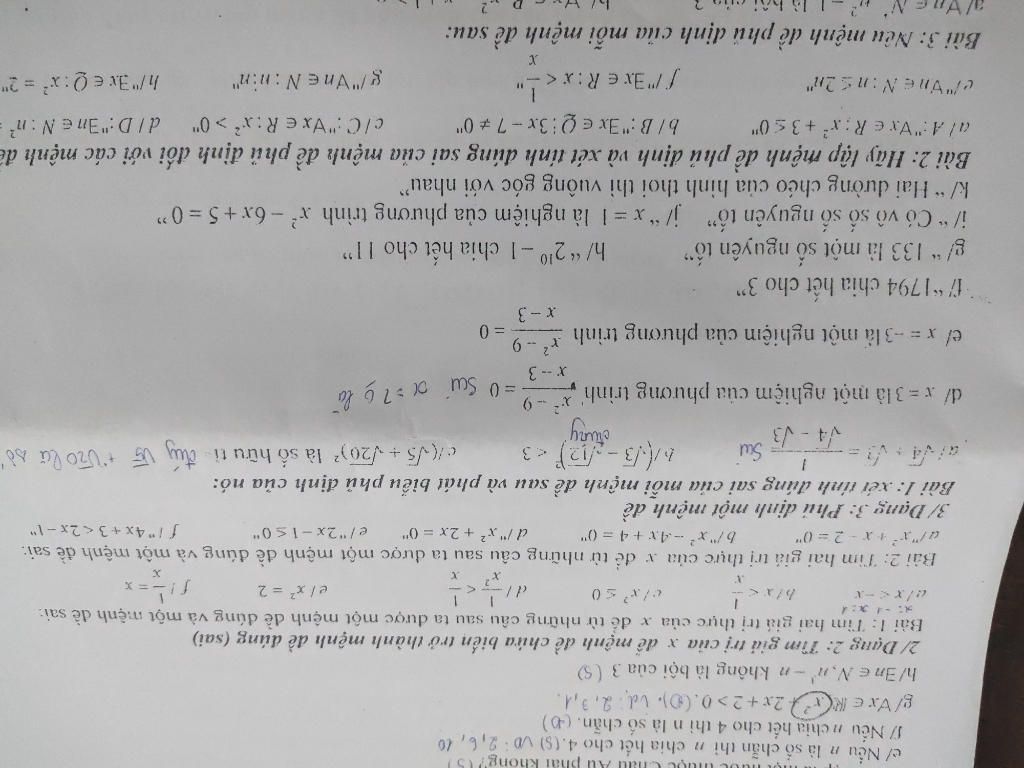 e/ Nếu n là số chẵn thì n chia hết cho 4. (S) VD: 2, 6, 10
f/ Nếu n chia hết cho 4 thì n là số chẵn. (Đ)
g/ ∀x ∈ ℝ, x² + 2x + 2 > 0. (Đ). Vd: 2, 3, 1.
h/ ∃n ∈ N, n³ − n không là bội của 3 (S)
2/ Dạng 2: Tìm giá trị của x để mệnh đề chứa biến trở thành mệnh đề đúng (sai)
Bài 1: Tìm hai giá trị thực của x để từ những câu sau ta được một mệnh đề đúng và một mệnh đề sai:
a/ x < −x b/ x < 1/x c/ x² ≤ 0 d/ 1/x² < 1/x e/ x² = 2 f/ 1/x = x
Bài 2: Tìm hai giá trị thực của x để từ những câu sau ta được một mệnh đề đúng và một mệnh đề sai:
a/ "x² + x − 2 = 0" b/ "x² − 4x + 4 = 0" d/ "x² + 2x = 0" e/ "2x − 1 ≤ 0" f/ "4x + 3 < 2x − 1"
3/ Dạng 3: Phủ định một mệnh đề
Bài 1: xét tính đúng sai của mỗi mệnh đề sau và phát biểu phủ định của nó:
a/ √4 + √3 = 1/(√4 − √3) Sai b/ (√3 − √12)² < 3 đúng c/ (√5 + √20)² là số hữu tỉ √5 + √20 là số
d/ x = 3 là một nghiệm của phương trình (x² − 9)/(x − 3) = 0 Sai
e/ x = −3 là một nghiệm của phương trình (x² − 9)/(x − 3) = 0
f/ "1794 chia hết cho 3"
g/ " 133 là một số nguyên tố" h/ "2¹⁰ − 1 chia hết cho 11"
i/ " Có vô số số nguyên tố" j/ "x = 1 là nghiệm của phương trình x² − 6x + 5 = 0 "
k/ " Hai đường chéo của hình thoi thì vuông góc với nhau"
Bài 2: Hãy lập mệnh đề phủ định và xét tính đúng sai của mệnh đề phủ định đối với các mệnh đề
a/ A: "∀x ∈ R : x² + 3 ≤ 0" b/ B: "∃x ∈ Q : 3x − 7 ≠ 0" c/ C: "∀x ∈ R : x² > 0" d/ D: "∃n ∈ N : n² =
e/ "∀n ∈ N : n ≤ 2n" f/ "∃x ∈ R : x < 1/x" g/ "∀n ∈ N : n⋮n" h/ "∃x ∈ Q : x² = 2"
Bài 3: Nêu mệnh đề phủ định của mỗi mệnh đề sau: